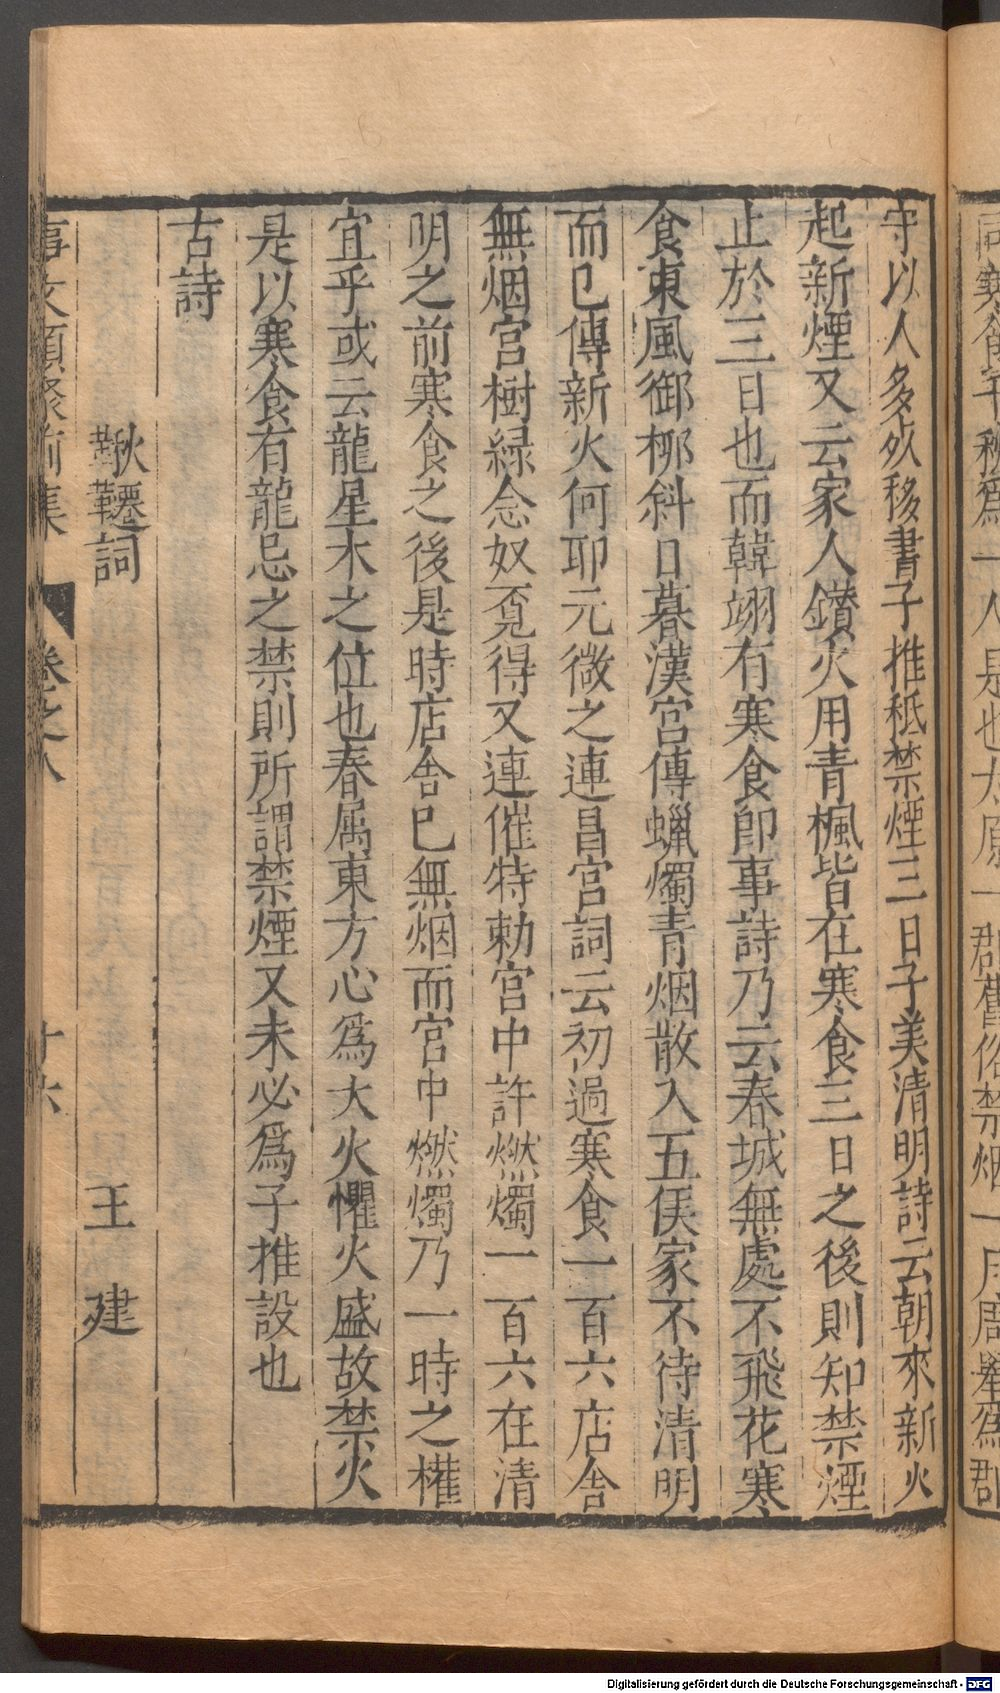 守以人多死移書子推秪禁煙三日子美清明詩云朝來新火
起新煙又云家人鑚火用青楓皆在寒食三日之後則知禁煙
止於三日也而韓翊有寒食即事詩乃云春城無處不飛花寒
食東風御栁斜日暮漢宮傳蠟燭青烟散入五侯家不待清明
而已傳新火何耶元微之連昌宮詞云初過寒食一百六店舍
無烟宮樹緑念奴覔得又連催特勑宮中許燃燭一一百六在清
明之前寒食之後是時店舍已無烟而宮中燃燭乃一時之權
宜乎或云龍星木之位也春属東方心爲大火懼火盛故禁火
是以寒食有龍忌之禁則所謂禁煙又未必爲子推設也
古詩
鞦韆詞 王建
事文類聚前集 卷之八 十六
Digitalisierung gefördert durch die Deutsche Forschungsgemeinschaft - DFG